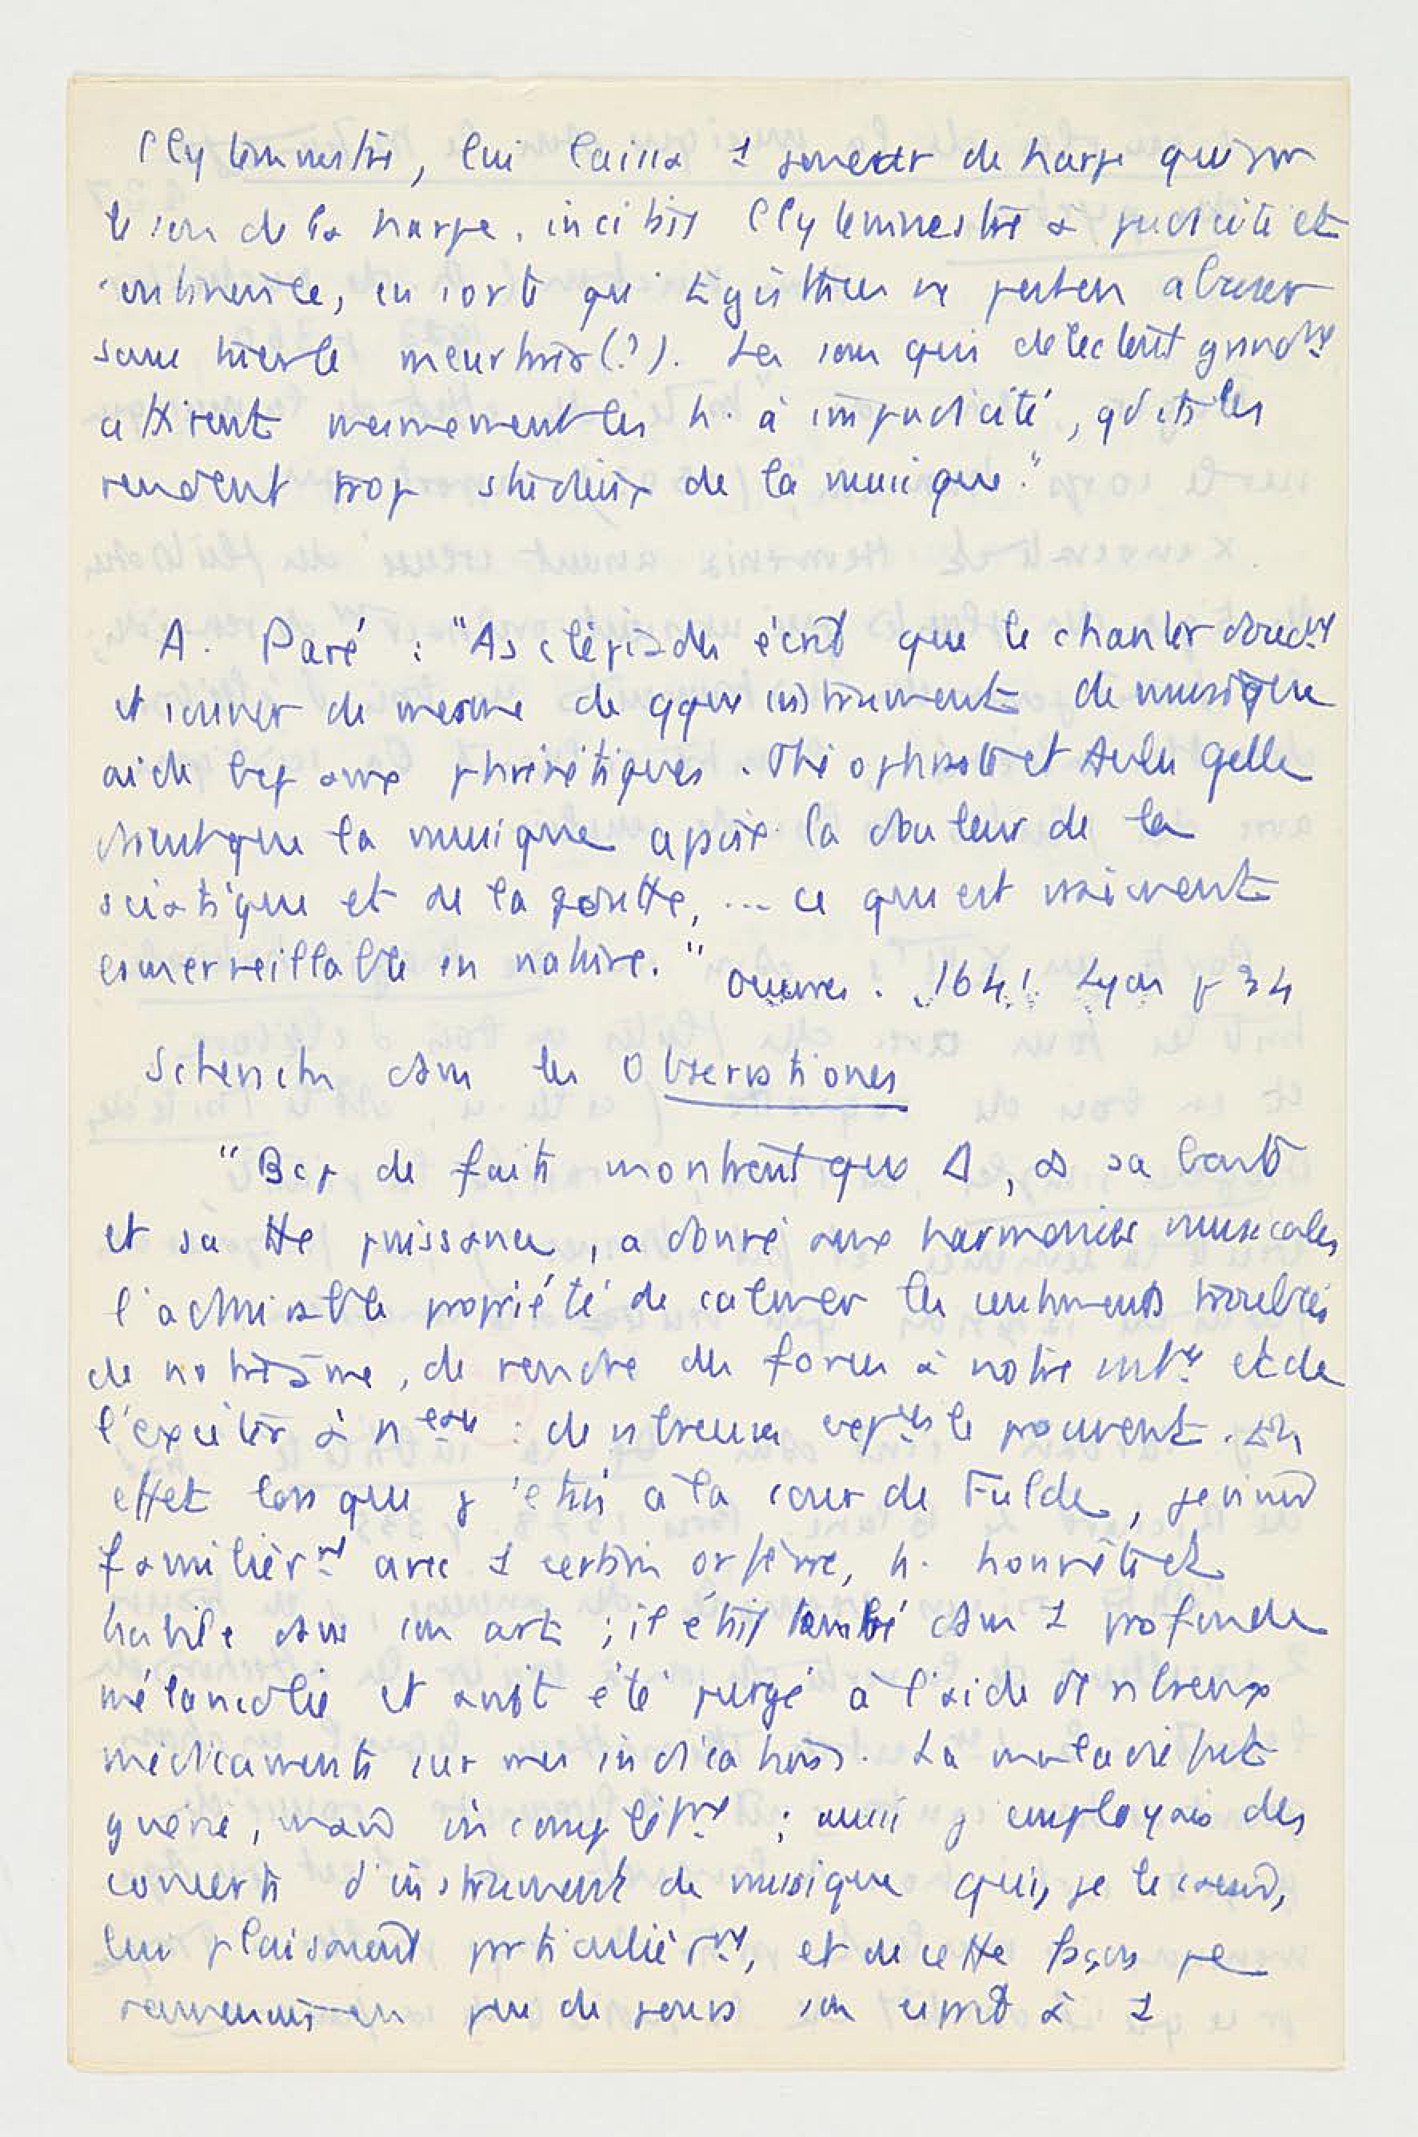 Clytemnestre, lui laissa 1 joueur de harpe qui par
le son de la harpe, incitait Clytemnestre à pudicité et
continence, en sorte qu'Egisthus ne peut en abuser
sans l'avoir meurtrir(?). Les sons qui délectent grandmt
attirent mesmement les h. à impudicité, qd ils les
rendent trop studieux de la musique."
A. Paré : "Asclépiades écrit que le chanter doucemt
et sonner de mesme de qque instrument de musique
aide bcp aux phrénétiques. Théophraste et Aulu Gelle
disent que la musique apaise la douleur de la
sciatique et de la goutte, ... ce qui est vraiment
esmerveillable en nature."
Oeuvres. 1641. Lyon p 34
Schenck dans les Observationes
"Bcp de faits montrent que Δ, ds sa bonté
et sa tte puissance, a donné aux harmonies musicales
l'admirable propriété de calmer les sentiments troublés
de notre âme, de rendre des forces à notre
l'exciter à : de nbreuses le prouvent. En
effet lorsque j'étais à la cour de Fulde, je vivais
familièrmt avec 1 certain orfèvre, h. honnête et
habile dans son art ; il était tombé dans 1 profonde
mélancolie et avait été purgé à l'aide de nbreux
médicaments sur mes indications. La maladie fut
guérie, mais incomplètmt ; aussi j'employais des
concerts d'instruments de musique qui, je le savais,
lui plaisaient particulièrmt, et de cette façon je
ramenais en peu de jours son esprit à 1